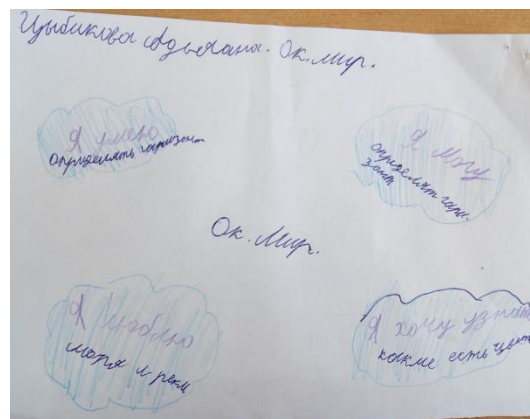 Цыбикова Адьяана. Ок. мир.
Я умею
определять гаризонт
Я могу
определят гари-
зонт
Ок. Мир.
Я люблю
моря и реки
Я хочу узнать
какие есть цвет